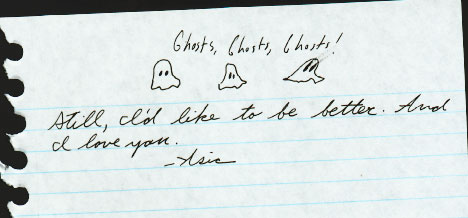 Ghosts, Ghosts, Ghosts!
Still, I'd like to be better. And
I love you.